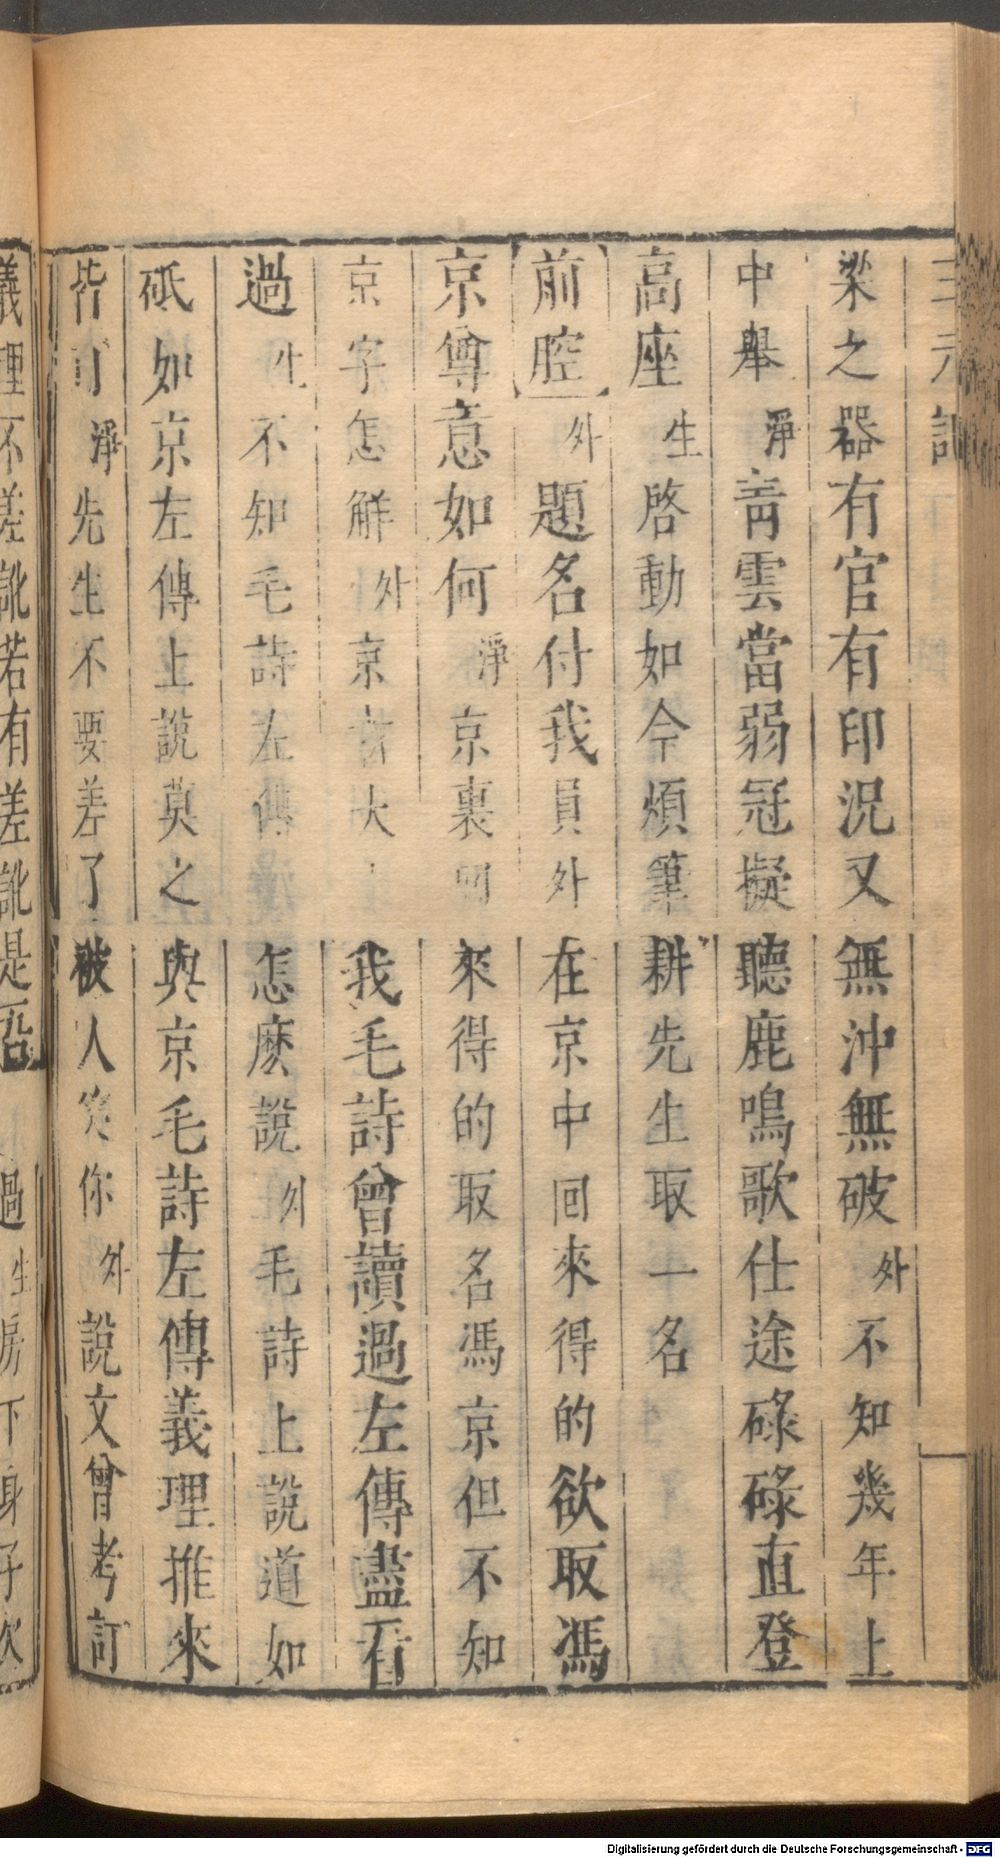 三元記
梁之器有官有印況又無沖無破外不知幾年上
中舉淨靑雲當弱冠擬聽鹿鳴歌仕途碌碌直登
高座生啓動如今煩筆耕先生取一名
前腔外題名付我員外在京中回來得的欲取馮
京尊意如何淨京裏回來得的取名馮京但不知
京字怎解外京者大我毛詩曾讀過左傳盡看
過生不知毛詩左傳怎麽說外毛詩上說道如
砥如京左傳上說莫之與京毛詩左傳義理推來
皆可淨先生不要差了被人笑你外說文曾考訂
義理不差訛若有差訛是吾過生房下身子欠
Digitalisierung gefördert durch die Deutsche Forschungsgemeinschaft - DFG